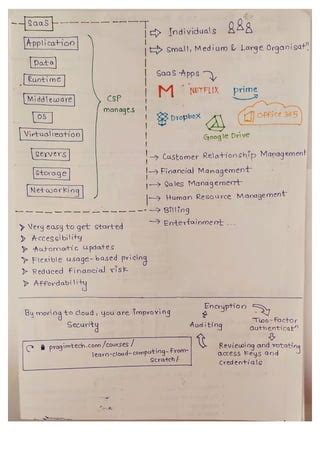 SaaS
Application
Data
Runtime
Middleware
OS
Virtualization
Servers
Storage
Networking
CSP
manages
Individuals
Small, Medium & Large Organisatⁿ
SaaS Apps
M
NETFLIX
prime
Dropbox
Google Drive
Office 365
Customer Relationship Management
Financial Management
Sales Management
Human Resource Management
Billing
Entertainment ...
Very easy to get started
Accessibility
Automatic updates
Flexible usage-based pricing
Reduced financial risk
Affordability
By moving to cloud, you are improving
Security
Encryption
Two-factor
authenticatⁿ
Auditing
Reviewing and rotating
access Keys and
Credentials
pragimtech.com/courses/
learn-cloud-computing-from-
scratch/